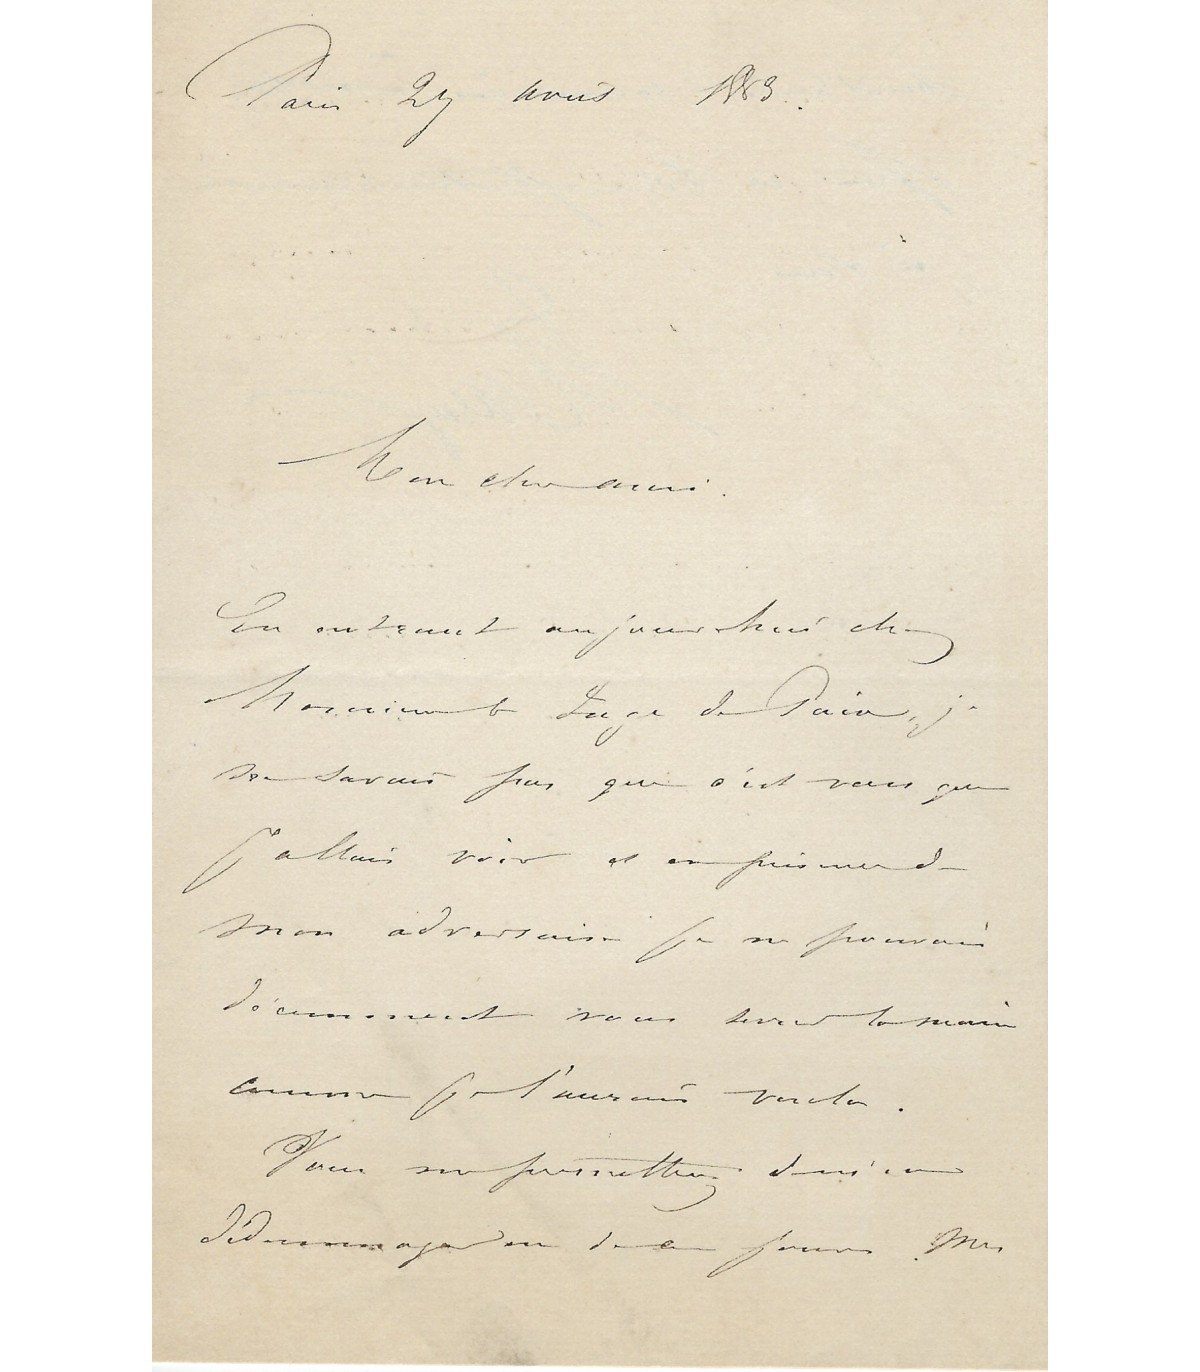 Paris 27 avril 1883.
Mon cher ami.
En entrant aujourd'hui chez
Monsieur le Juge de Paix, je
ne savais pas que c'est vous que
j'allais voir et en présence de
mon adversaire je ne pouvais
décemment vous serrer la main
comme je l'aurais voulu.
Vous me permettrez de m'en
dédommager un de ces jours. Mes